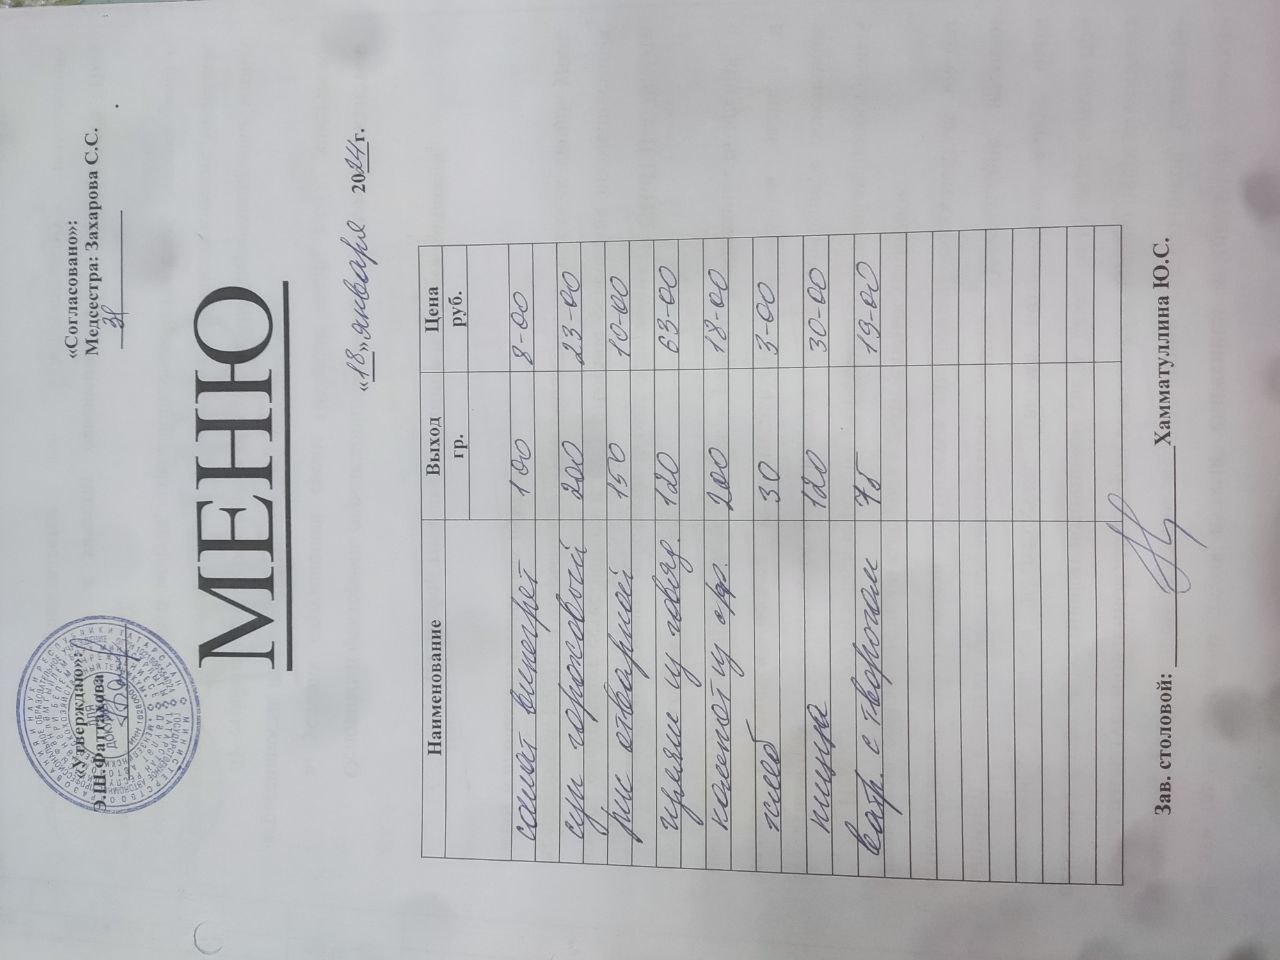 «Утверждаю»:
Э.Ш.Фаттахова
«Согласовано»:
Медсестра: Захарова С.С.
МЕНЮ
«18» января 2024г.
Наименование Выход гр. Цена руб.
салат винегрет 100 8-00
суп гороховый 200 23-00
рис отварной 150 10-00
гуляш из говяд. 120 63-00
компот из с/фр. 200 18-00
хлеб 30 3-00
пицца 120 30-00
ватр. с творогом 75 19-00
Зав. столовой: Хамматуллина Ю.С.